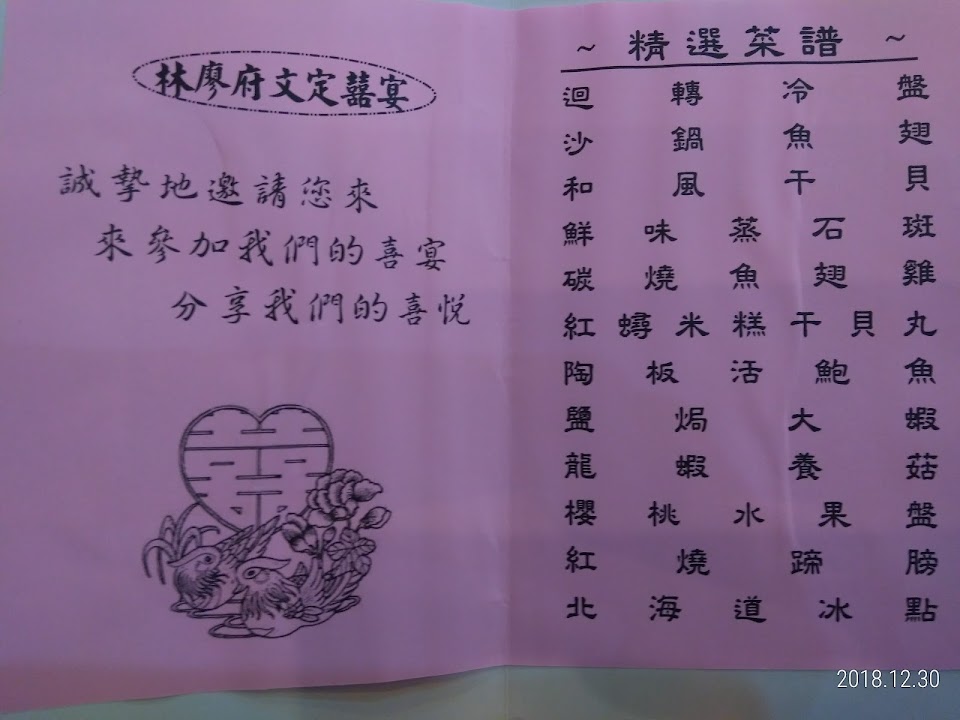 林廖府文定囍宴
誠摯地邀請您來
來參加我們的喜宴
分享我們的喜悅
~ 精選菜譜 ~
迴轉冷盤
沙鍋魚翅
和風干貝
鮮味蒸石斑
碳燒魚翅雞
紅蟳米糕干貝丸
陶板活鮑魚
鹽焗大蝦
龍蝦養菇
櫻桃水果盤
紅燒蹄膀
北海道冰點
2018.12.30